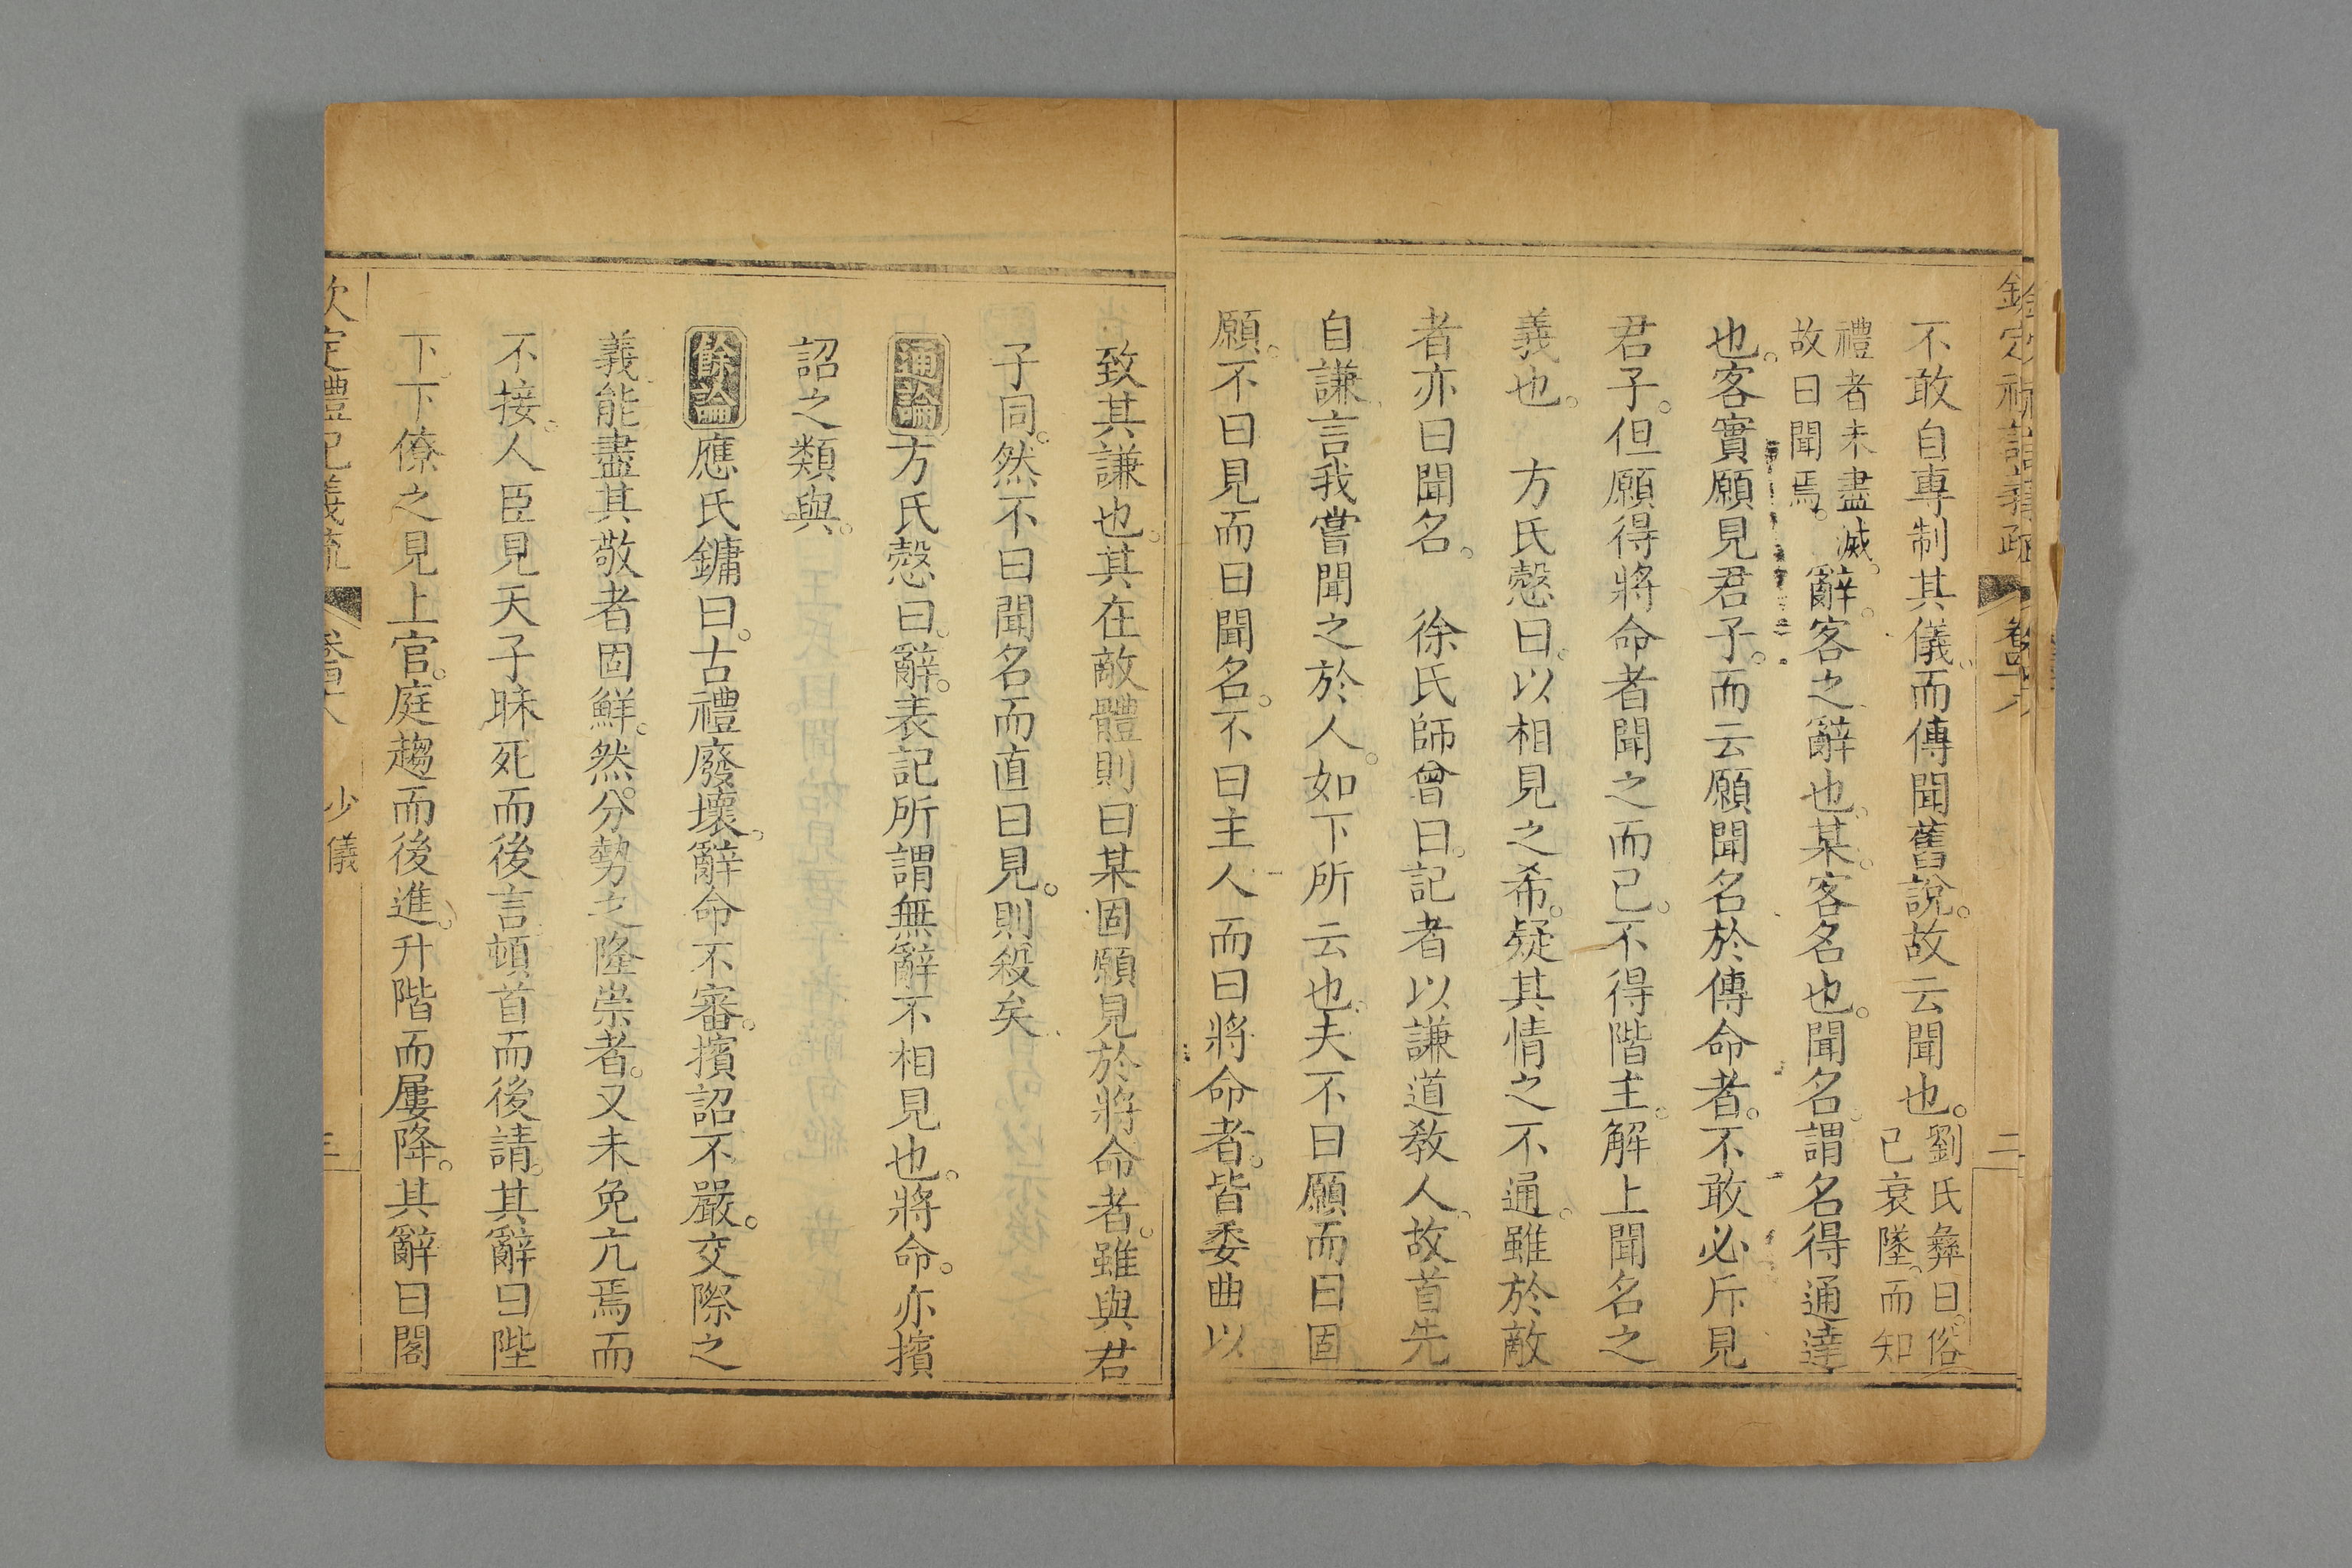 不敢自專制其儀而傳聞舊說。故云聞也。劉氏彝曰。俗已衰墜。而知
禮者未盡滅。故曰聞焉。辭。客之辭也。某。客名也。聞名。謂名得通達
也。客實願見君子。而云願聞名於傳命者。不敢必斥見
君子。但願得將命者聞之而已。不得階主。解上聞名之
義也。 方氏慤曰。以相見之希。疑其情之不通。雖於敵
者亦曰聞名。 徐氏師曾曰。記者以謙道教人。故首先
自謙言我嘗聞之於人。如下所云也。夫不曰願而曰固
願。不曰見而曰聞名。不曰主人而曰將命者。皆委曲以
致其謙也。其在敵體則曰某固願見於將命者。雖與君
子同。然不曰聞名而直曰見。則殺矣
通論方氏慤曰。辭。表記所謂無辭不相見也。將命。亦擯
詔之類與。
餘論應氏鏞曰。古禮廢壞。辭命不審。擯詔不嚴。交際之
義能盡其敬者固鮮。然分勢之隆崇者。又未免亢焉而
不接。人臣見天子昧死而後言頓首而後請。其辭曰陛
下。下僚之見上官。庭趨而後進。升階而屢降。其辭曰閣
欽定禮記義疏 少儀 三